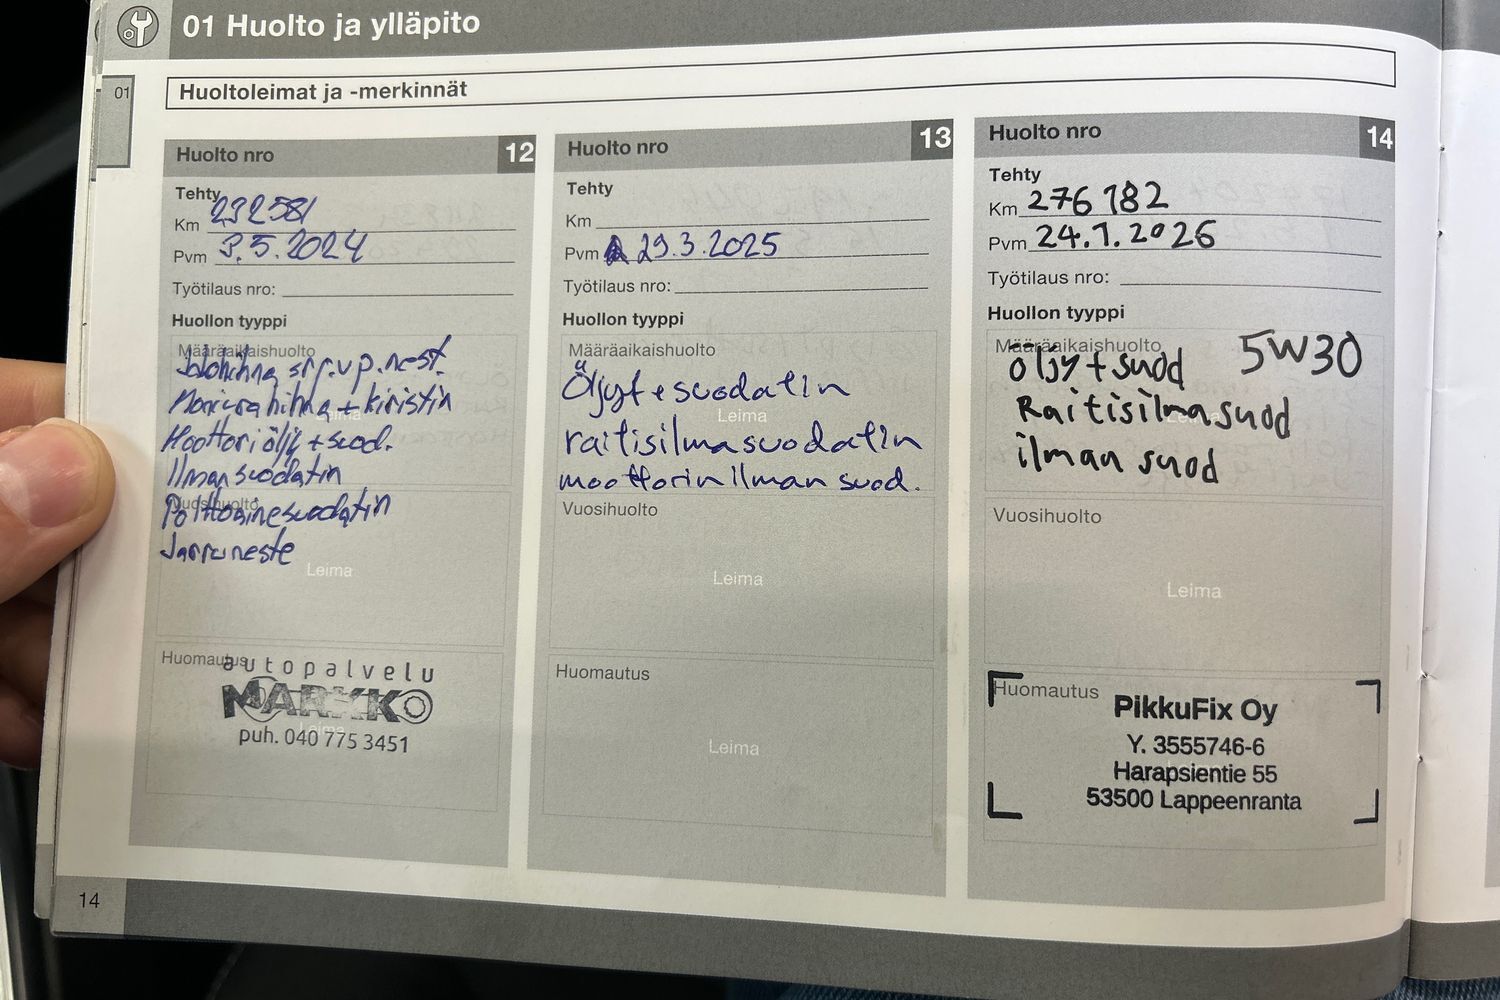 01 Huolto ja ylläpito
01
Huoltoleimat ja -merkinnät
Huolto nro 12
Tehty
Km 232581
Pvm 3.5.2024
Työtilaus nro:
Huollon tyyppi
Määräaikaishuolto
Jakohihna srj. vp. nest.
Monivrahihna + kiristin
Leima
Moottoriöljy + suod.
Ilmansuodatin
Vuosihuolto
Polttoainesuodatin
Jarruneste
Leima
Huomautus
autopalvelu
MARKKO
Leima
puh. 040 775 3451
Huolto nro 13
Tehty
Km
Pvm 29.3.2025
Työtilaus nro:
Huollon tyyppi
Määräaikaishuolto
Öljyt + suodatin
Leima
raitisilmasuodatin
moottorinilman suod.
Vuosihuolto
Leima
Huomautus
Leima
Huolto nro 14
Tehty
Km 276 182
Pvm 24.1.2026
Työtilaus nro:
Huollon tyyppi
Määräaikaishuolto
öljy + suod 5W30
Raitisilmasuod
Leima
ilman suod
Vuosihuolto
Leima
Huomautus
PikkuFix Oy
Y. 3555746-6
Harapsientie 55
53500 Lappeenranta
14